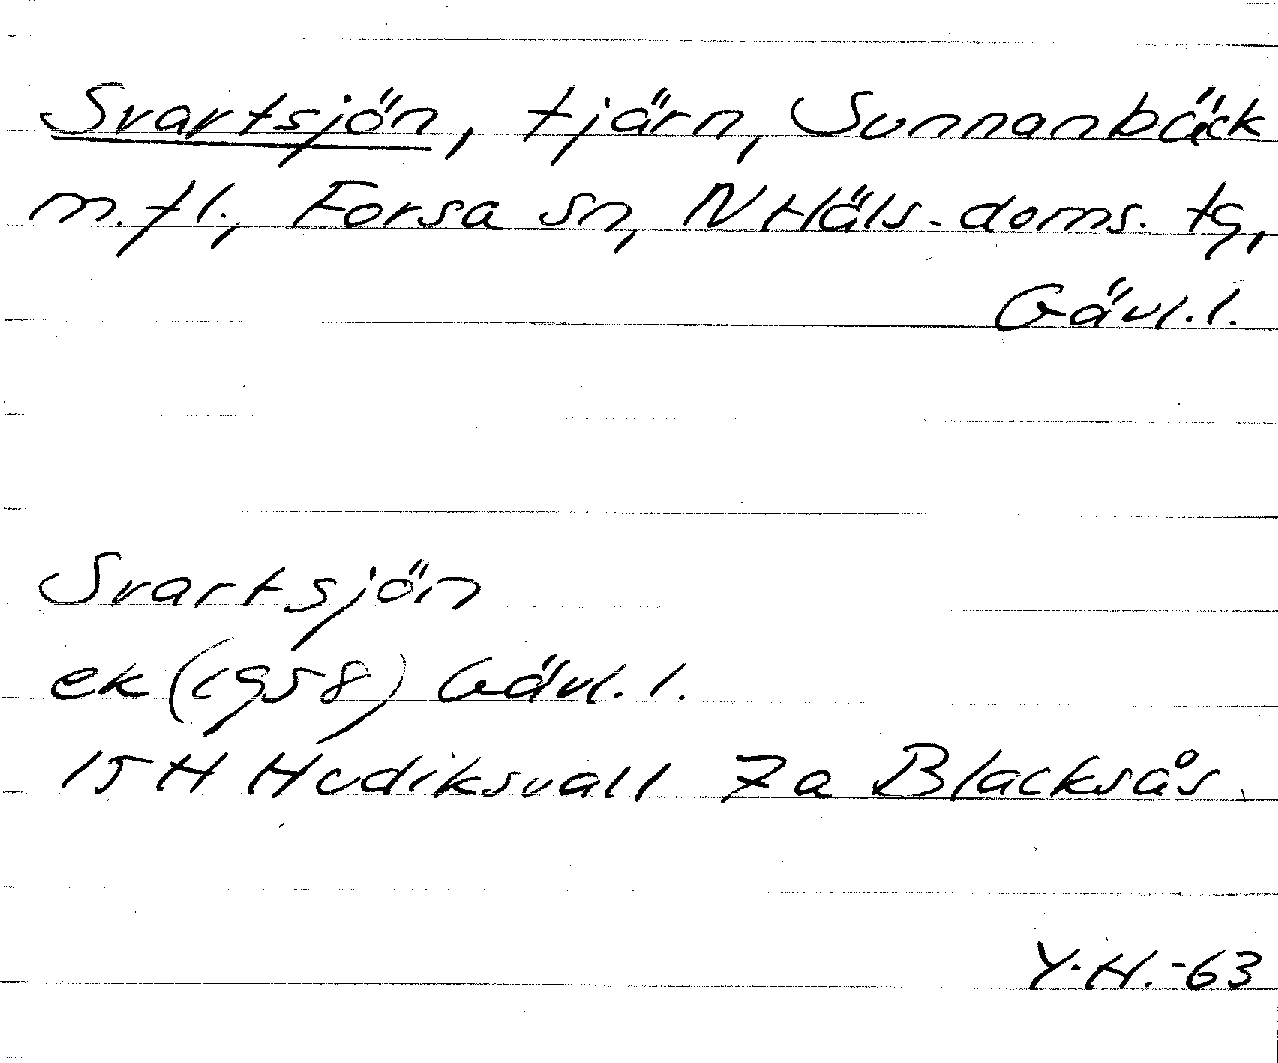 Svartsjön, tjärn, Sunnanbäck
m.fl., Forsa sn, N Häls. doms. tg,
Gävl.l.
Svartsjön
ek (1958) Gävl.l.
15H Hudiksvall 7a Blacksås.
Y.H.-63